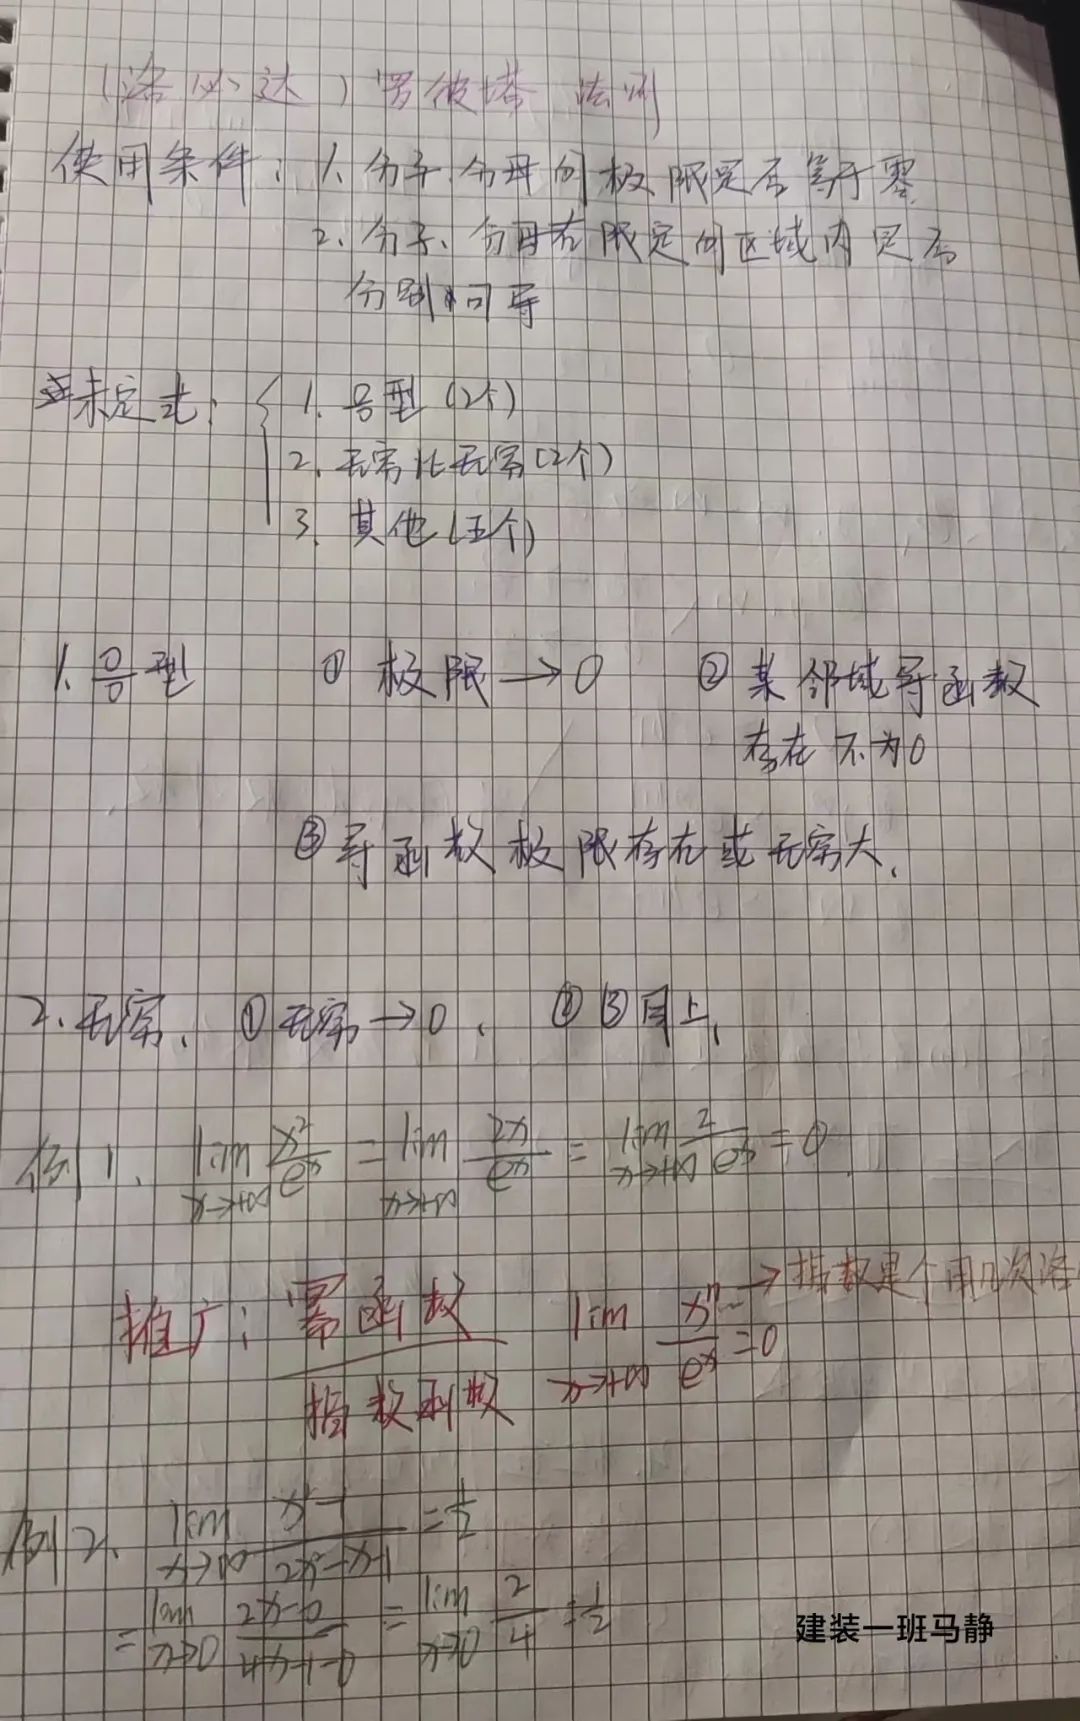 (洛必达)罗彼塔 法则
使用条件：1. 分子.分母的极限是否等于零
2. 分子、分母在限定的区域内是否
分别可导
未定式：{ 1. 0/0型(2个)
2. 无穷比无穷(2个)
3. 其他(五个)
1. 0/0型 ① 极限→0 ② 某邻域导函数
存在不为0
③ 导函数极限存在或无穷大.
2. 无穷. ①无穷→0. ② ③ 同上.
例1. lim x→+∞ x²/eˣ = lim x→+∞ 2x/eˣ = lim x→+∞ 2/eˣ = 0
推广：幂函数/指数函数 lim x→+∞ xⁿ/eˣ = 0 → 指数是个用几次洛
例2. lim x→∞ x²-1/2x²-x-1 = 1/2
= lim x→0 2x-0/4x-1-0 = lim x→0 2/4 = 1/2
建装一班马静